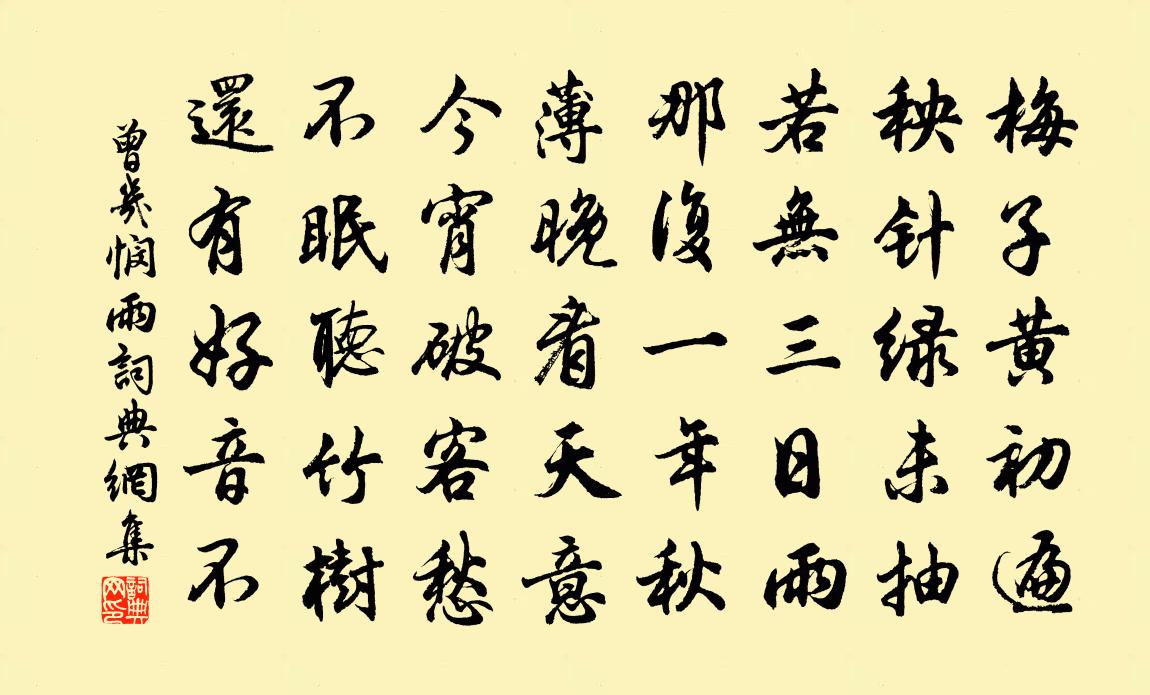 梅子黄初遍
秧针绿未抽
若無三日雨
那復一年秋
薄晚看天意
今宵破客愁
不眠聽竹樹
還有好音不
曾幾悯雨詞典網集
詞典网印